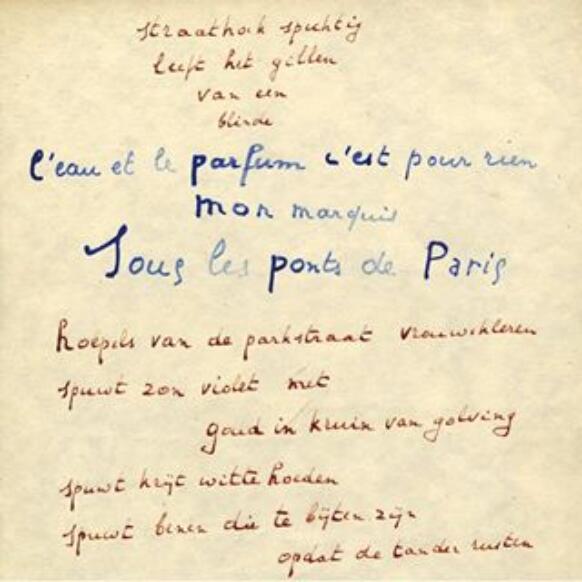 straathoek spichtig
leeft het gillen
van een
blinde
l'eau et le parfum c'est pour rien
mon marquis
Sous les ponts de Paris
hoepels van de parkstraat vrouwekleren
spuwt zon violet met
goud in kruin van golving
spuwt krijt witte hoeden
spuwt benen die te bijten zijn
opdat de tanden rusten